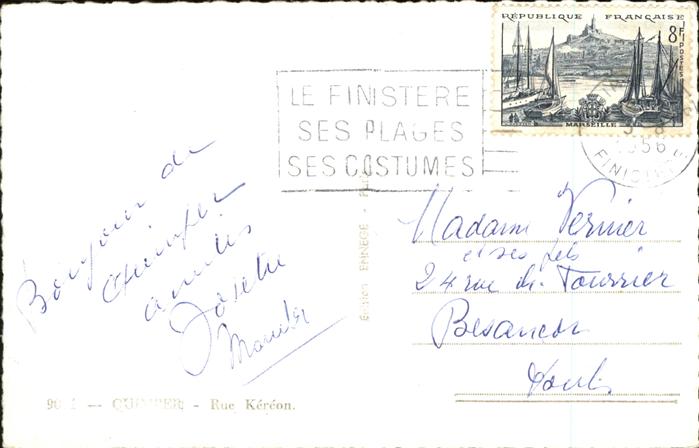 RÉPUBLIQUE FRANÇAISE
8F
POSTES
MARSEILLE
LE FINISTERE
SES PLAGES
SES COSTUMES
1956
FINISTERE
Bonjour de
Quimper
amitiés
Josette
Madame Vernier
et ses fils
24 rue de Tourrier
Besancon
Doubs
Edition EMNEGE
90 1 — QUIMPER - Rue Kéréon.